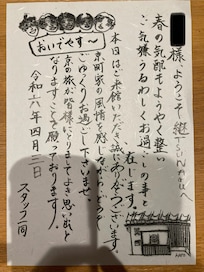 様 ようこそ 継 TSUNAGU へ
春の気配もようやく整い
ご気嫌うるわしくお過ごしの事と
存じます。
本日はご来館いただき誠にありがとうございます。
京町家の風情を感じながらどうぞ
ごゆっくりお過ごし下さいませ。
京の旅が皆様にとりましてよき思い出と
なりますことを願っております。
令和六年四月三日
スタッフ一同
おいでやす〜